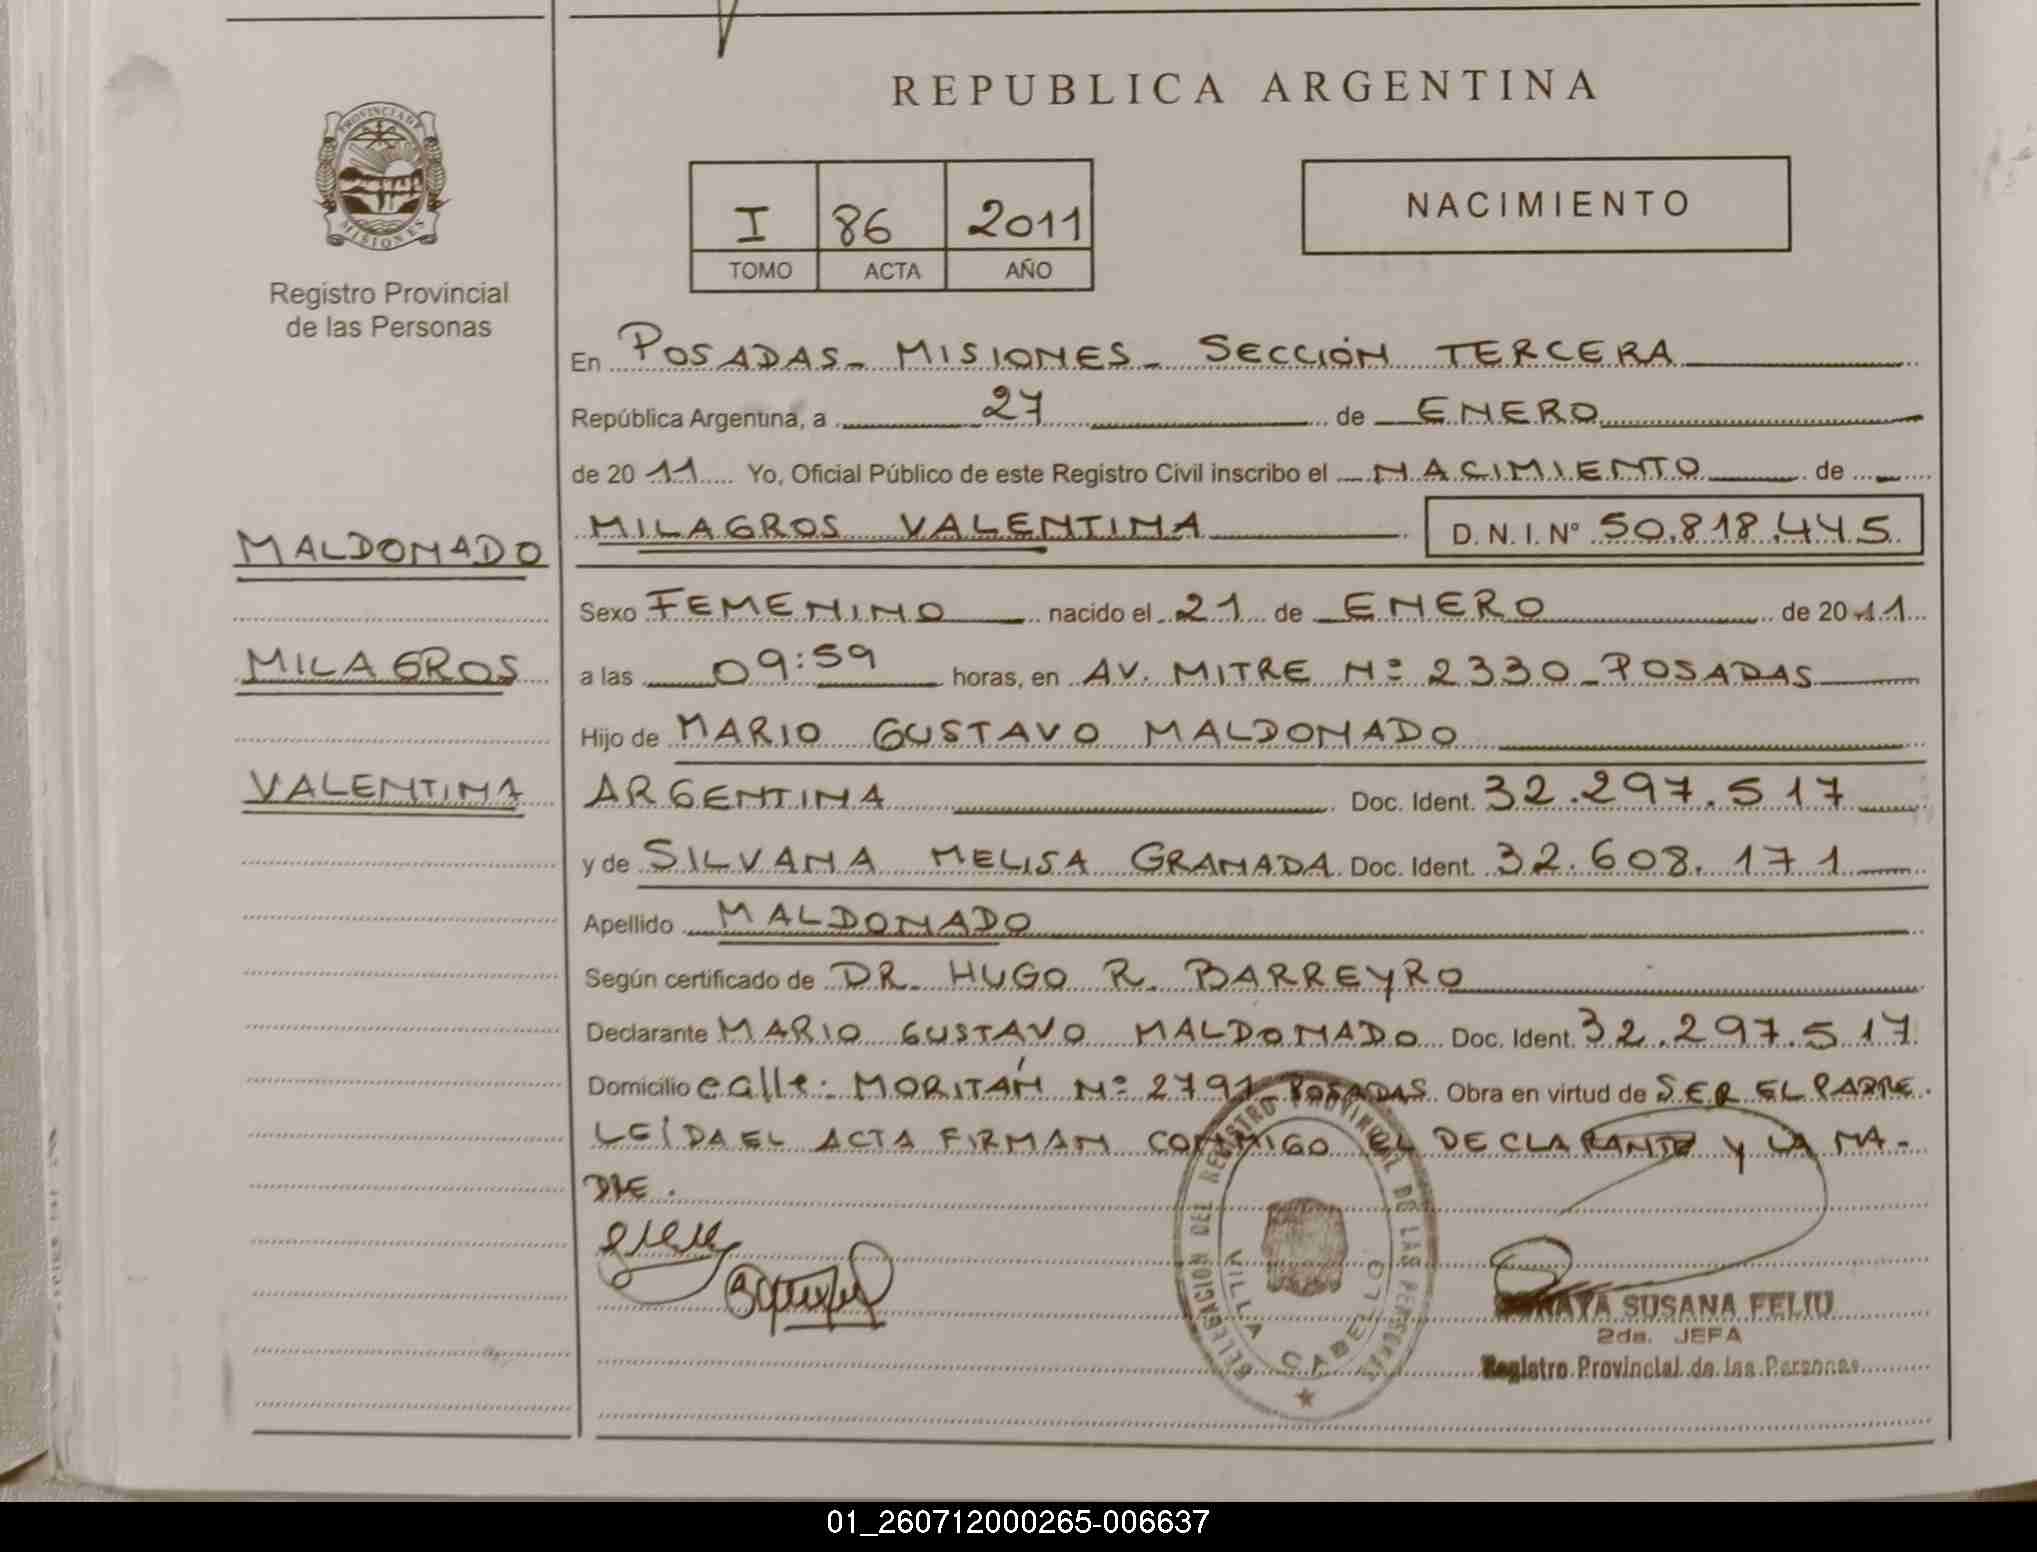 REPUBLICA ARGENTINA
PROVINCIA DE MISIONES
Registro Provincial
de las Personas
I 86 2011
TOMO ACTA AÑO
NACIMIENTO
En POSADAS - MISIONES - SECCIÓN TERCERA
República Argentina, a 27 de ENERO
de 2011 Yo, Oficial Público de este Registro Civil inscribo el NACIMIENTO de
MALDONADO
MILAGROS
VALENTINA
MILAGROS VALENTINA D.N.I. N° 50.818.445
Sexo FEMENINO nacido el 21 de ENERO de 2011
a las 09:59 horas, en AV. MITRE Nº 2330 - POSADAS
Hijo de MARIO GUSTAVO MALDONADO
ARGENTINA Doc. Ident. 32.297.517
y de SILVANA MELISA GRANADA Doc. Ident. 32.608.171
Apellido MALDONADO
Según certificado de DR. HUGO R. BARREYRO
Declarante MARIO GUSTAVO MALDONADO Doc. Ident. 32.297.517
Domicilio calle: MORITÁN Nº 2791 - POSADAS Obra en virtud de SER EL PADRE.
LEÍDA EL ACTA FIRMAN CONMIGO EL DECLARANTE Y LA MA-
DRE.
DELEGACION DEL REGISTRO PROVINCIAL DE LAS PERSONAS
VILLA CABELLO
SUSANA FELIU
2da. JEFA
Registro Provincial de las Personas
01_260712000265-006637